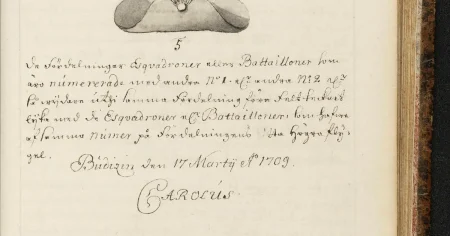 5
De Fördelningar Esquadroner eller Battailloner som
äro númererade med andra N:o 1. och andra N:o 2 och
så widare uthi samma Fördelning
med de Esquadroner och Battailloner, som hafwa
af samma númer på Fördelningens Högra flÿ-
gel.
Búdizin den 17 Martÿ Ao 1709.
CAROLÚS.